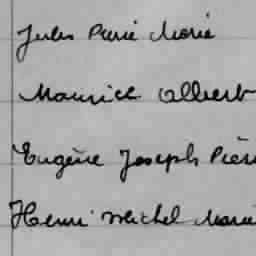 Jules Pierre Marie
Maurice Albert
Eugène Joseph Pierr
Henri Michel Marie